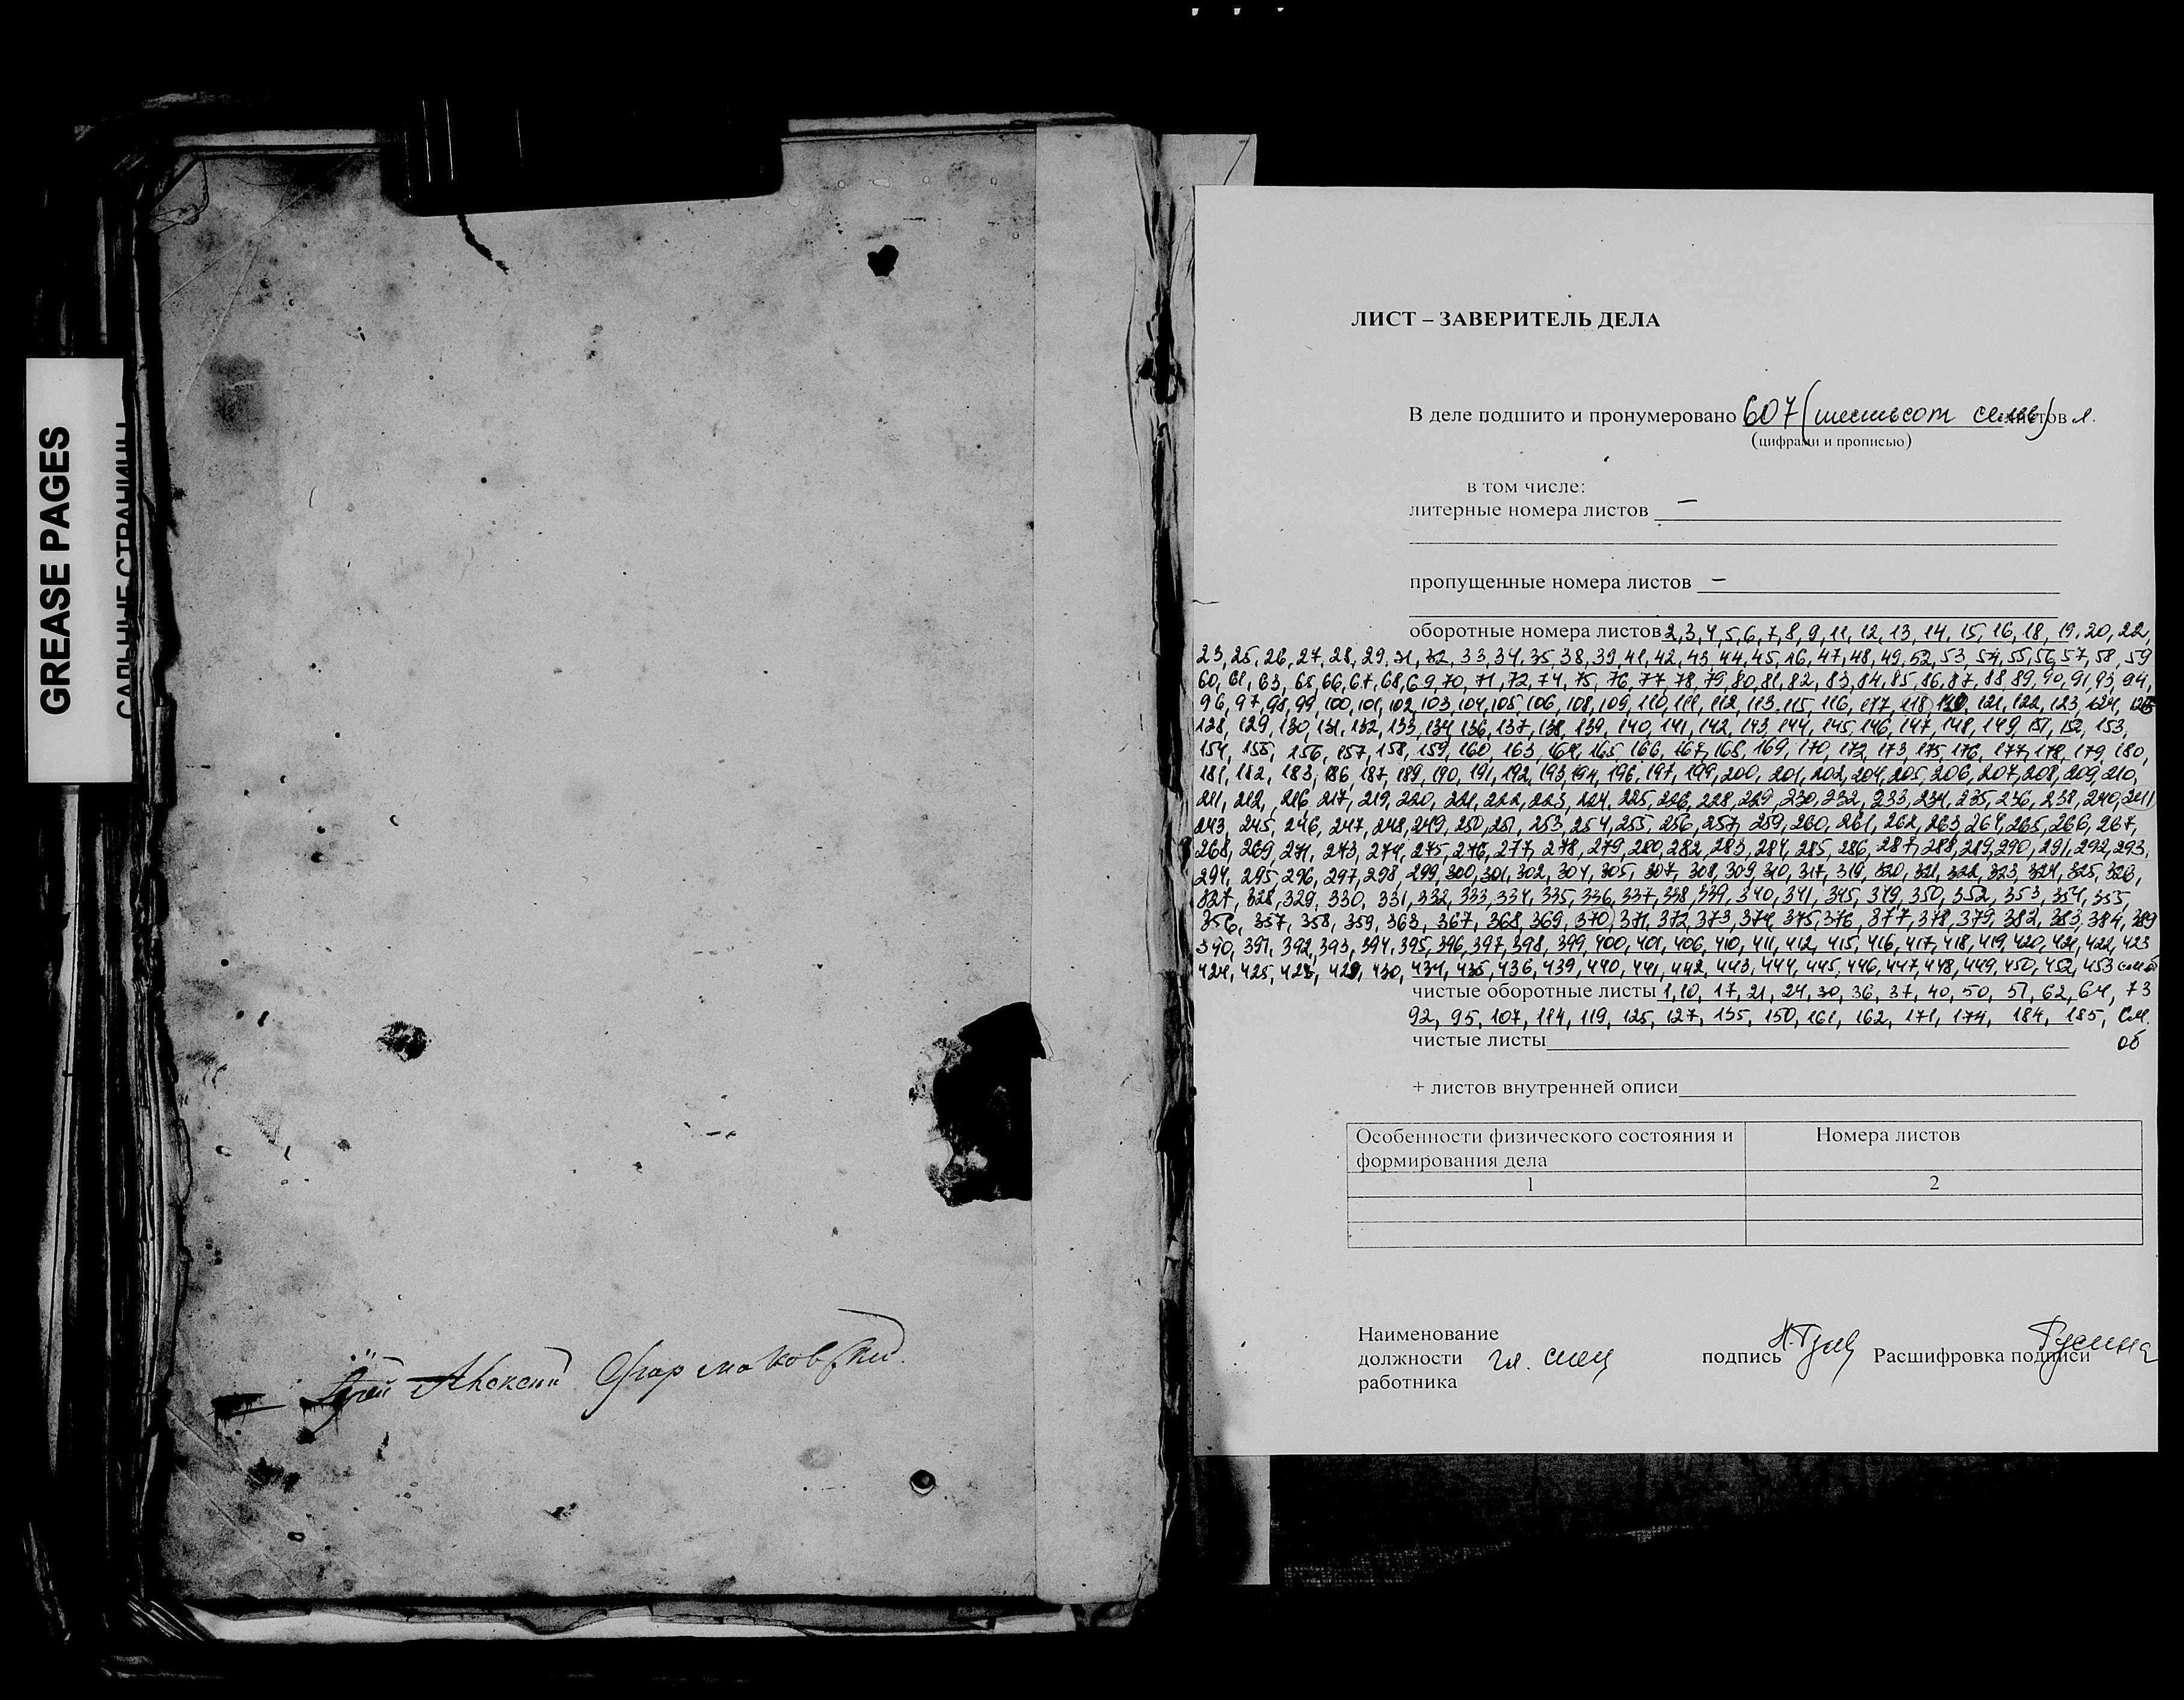 GREASE PAGES
САЛЬНЫЕ СТРАНИЦЫ
ЛИСТ – ЗАВЕРИТЕЛЬ ДЕЛА
В деле подшито и пронумеровано 607 (шестьсот семь) листов л.
(цифрами и прописью)
в том числе:
литерные номера листов —
пропущенные номера листов —
оборотные номера листов 2, 3, 4, 5, 6, 7, 8, 9, 11, 12, 13, 14, 15, 16, 18, 19, 20, 22,
23, 25, 26, 27, 28, 29, 31, 32, 33, 34, 35, 38, 39, 41, 42, 43, 44, 45, 46, 47, 48, 49, 52, 53, 54, 55, 56, 57, 58, 59
60, 61, 63, 65, 66, 67, 68, 69, 70, 71, 72, 74, 75, 76, 77, 78, 79, 80, 81, 82, 83, 84, 85, 86, 87, 88, 89, 90, 91, 93, 94,
96, 97, 98, 99, 100, 101, 102, 103, 104, 105, 106, 108, 109, 110, 111, 112, 113, 115, 116, 117, 118, 120, 121, 122, 123, 124, 126
128, 129, 130, 131, 132, 133, 134, 136, 137, 138, 139, 140, 141, 142, 143, 144, 145, 146, 147, 148, 149, 151, 152, 153,
154, 155, 156, 157, 158, 159, 160, 163, 164, 165, 166, 167, 168, 169, 170, 172, 173, 175, 176, 177, 178, 179, 180,
181, 182, 183, 186, 187, 189, 190, 191, 192, 193, 194, 196, 197, 199, 200, 201, 202, 204, 205, 206, 207, 208, 209, 210,
211, 212, 216, 217, 219, 220, 221, 222, 223, 224, 225, 226, 228, 229, 230, 232, 233, 234, 235, 236, 238, 240, 241
243, 245, 246, 247, 248, 249, 250, 251, 253, 254, 255, 256, 257, 259, 260, 261, 262, 263, 264, 265, 266, 267,
268, 269, 271, 273, 274, 275, 276, 277, 278, 279, 280, 282, 283, 284, 285, 286, 287, 288, 289, 290, 291, 292, 293,
294, 295, 296, 297, 298, 299, 300, 301, 302, 304, 305, 307, 308, 309, 310, 317, 319, 320, 321, 322, 323, 324, 325, 326,
327, 328, 329, 330, 331, 332, 333, 334, 335, 336, 337, 338, 339, 340, 341, 345, 349, 350, 352, 353, 354, 355,
356, 357, 358, 359, 363, 367, 368, 369, 370, 371, 372, 373, 374, 375, 376, 377, 378, 379, 382, 383, 384, 389
390, 391, 392, 393, 394, 395, 396, 397, 398, 399, 400, 401, 406, 410, 411, 412, 415, 416, 417, 418, 419, 420, 421, 422, 423
424, 425, 428, 429, 430, 434, 435, 436, 439, 440, 441, 442, 443, 444, 445, 446, 447, 448, 449, 450, 452, 453 см об
чистые оборотные листы 1, 10, 17, 21, 24, 30, 36, 37, 40, 50, 51, 62, 64, 73
92, 95, 107, 114, 119, 125, 127, 135, 150, 161, 162, 171, 174, 184, 185, см.
об
чистые листы
+ листов внутренней описи
Особенности физического состояния и формирования дела
Номера листов
1
2
Наименование
должности гл. спец подпись Расшифровка подписи Гусина
работника